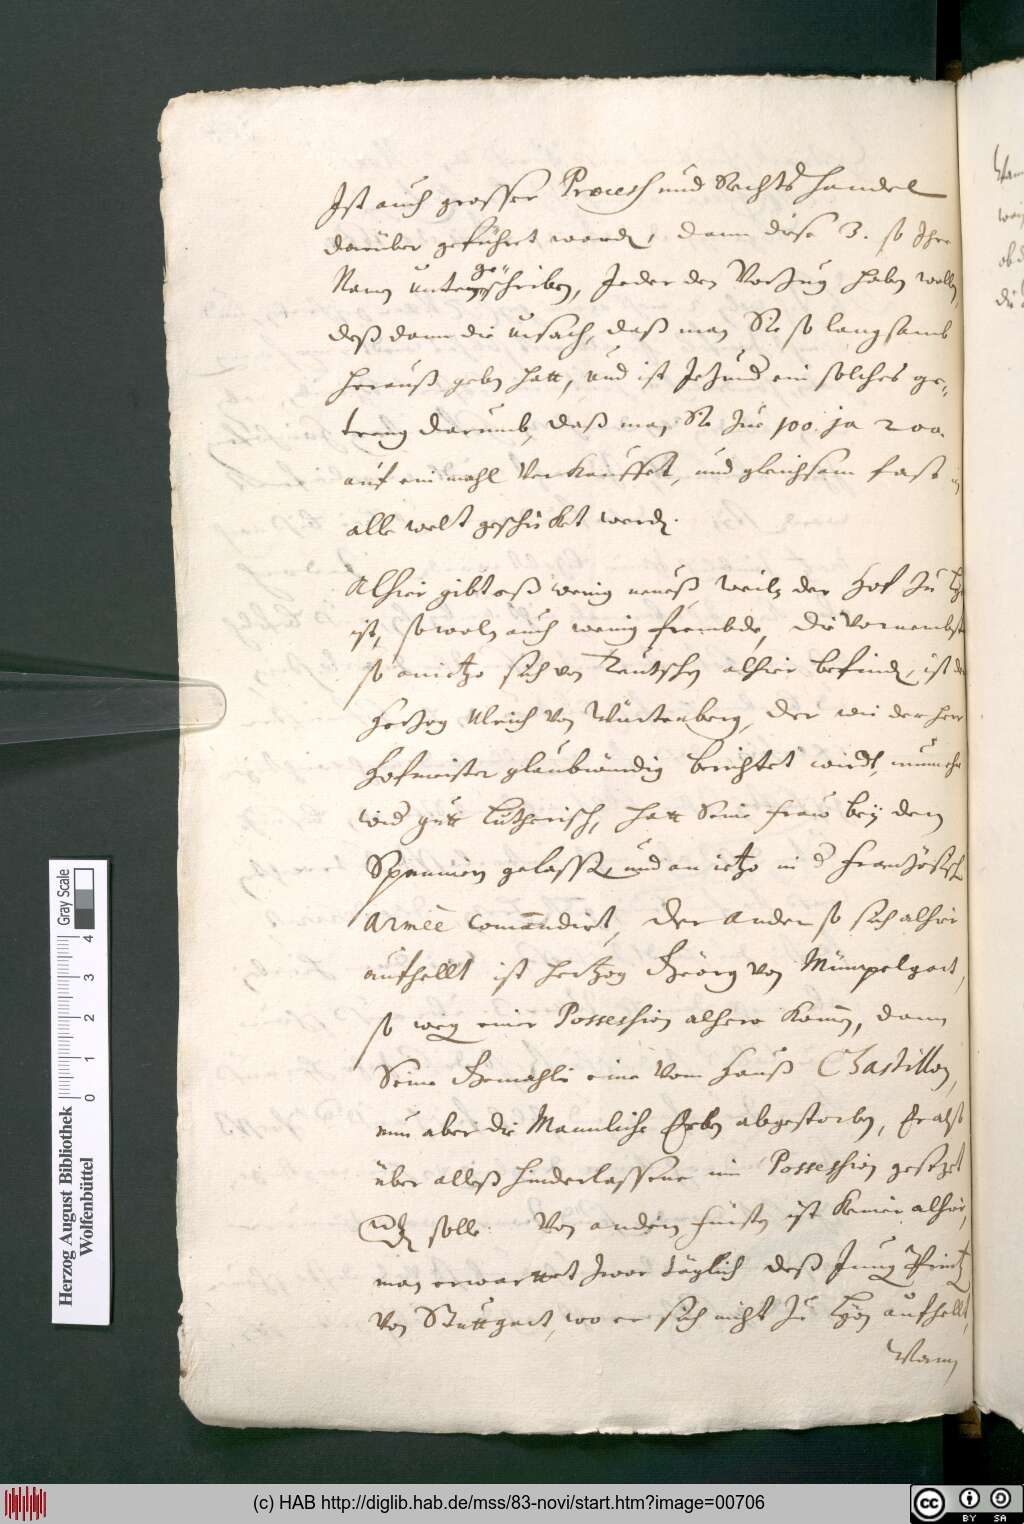 Ist auch grosser Process und Rechts handel
darüber geführet worden, dann diese 3. so Ihre
Namen unterge
schrieben, Jeder den Vorzug haben wollen,
deß dann die ursach, daß man Sie so langsamb
herauß geben hatt, und ist Jezund ein solches ge-
treng darumb, daß man Sie zue 100. ja 200.
auf ein mahl Verkauffet, und gleichsam fast in
alle welt geschicket werden.
Alhier gibt eß wenig neues weiln der Hof zu
ist, sowoln auch wenig frembde, die Vornembste
so anietzo sich von Teutschen alhier befinden, ist der
Herzog Ulrich von Würtenberg, der wie der herr
Hofmeister glaubwürdig berichtet wirdt, nunmehr
wid gutt Lutherisch, hatt Seine frau bey den
Spaniern gelassen, und an ietzo in d Französische
Armée comandirt, der ander so sich alhier
aufhellt ist hertzog Georg von Mümpelgart,
so wegen einer Possession alhero kommen, dann
Seine Gemahlin eine vom Hauß Chastillon,
nun aber die Mannliche Erben abgestorben, Er also
über alleß hinderlassene in Possession gesezet
werden solle. Von andern Fürsten ist keiner alhier,
man erwarttet zwar täglich deß Jung Printz
von Stuttgart, wo er sich nicht zu Lyon aufhellt,
Wann
Herzog August Bibliothek
Wolfenbüttel
0 1 2 3 4
Gray Scale
(c) HAB http://diglib.hab.de/mss/83-novi/start.htm?image=00706
CC BY SA